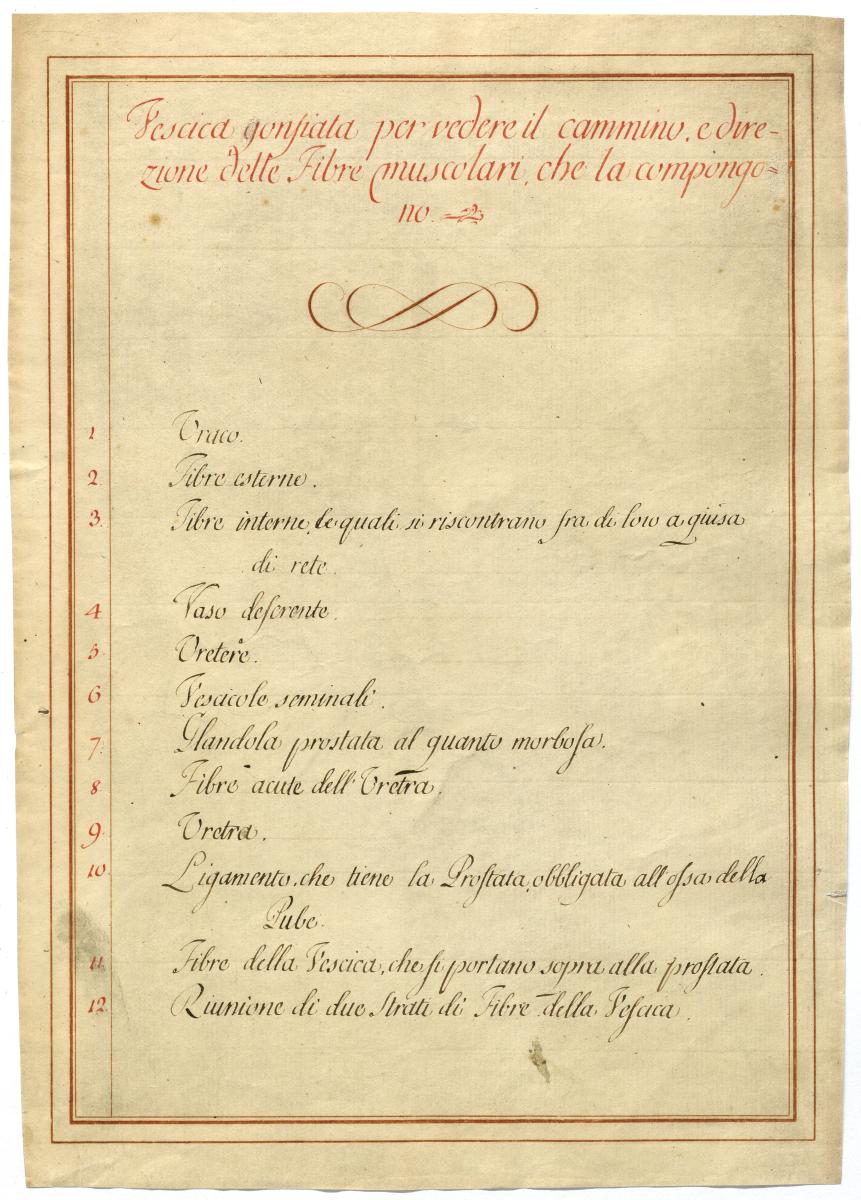 Vescica gonfiata per vedere il cammino, e dire-
zione delle Fibre muscolari, che la compongo=
no.
1 Vraco.
2 Fibre esterne.
3. Fibre interne, le quali si riscontrano fra di loro a guisa
di rete.
4 Vaso deferente.
5 Vretere.
6 Vescicole seminali.
7. Glandola prostata al quanto morbosa.
8. Fibre acute dell'Vretra.
9. Vretra.
10 Ligamento, che tiene la Prostata, obbligata all'ossa della
Pube.
11 Fibre della Vescica, che si portano sopra alla prostata.
12. Riunione di due Strati di Fibre della Vescica.